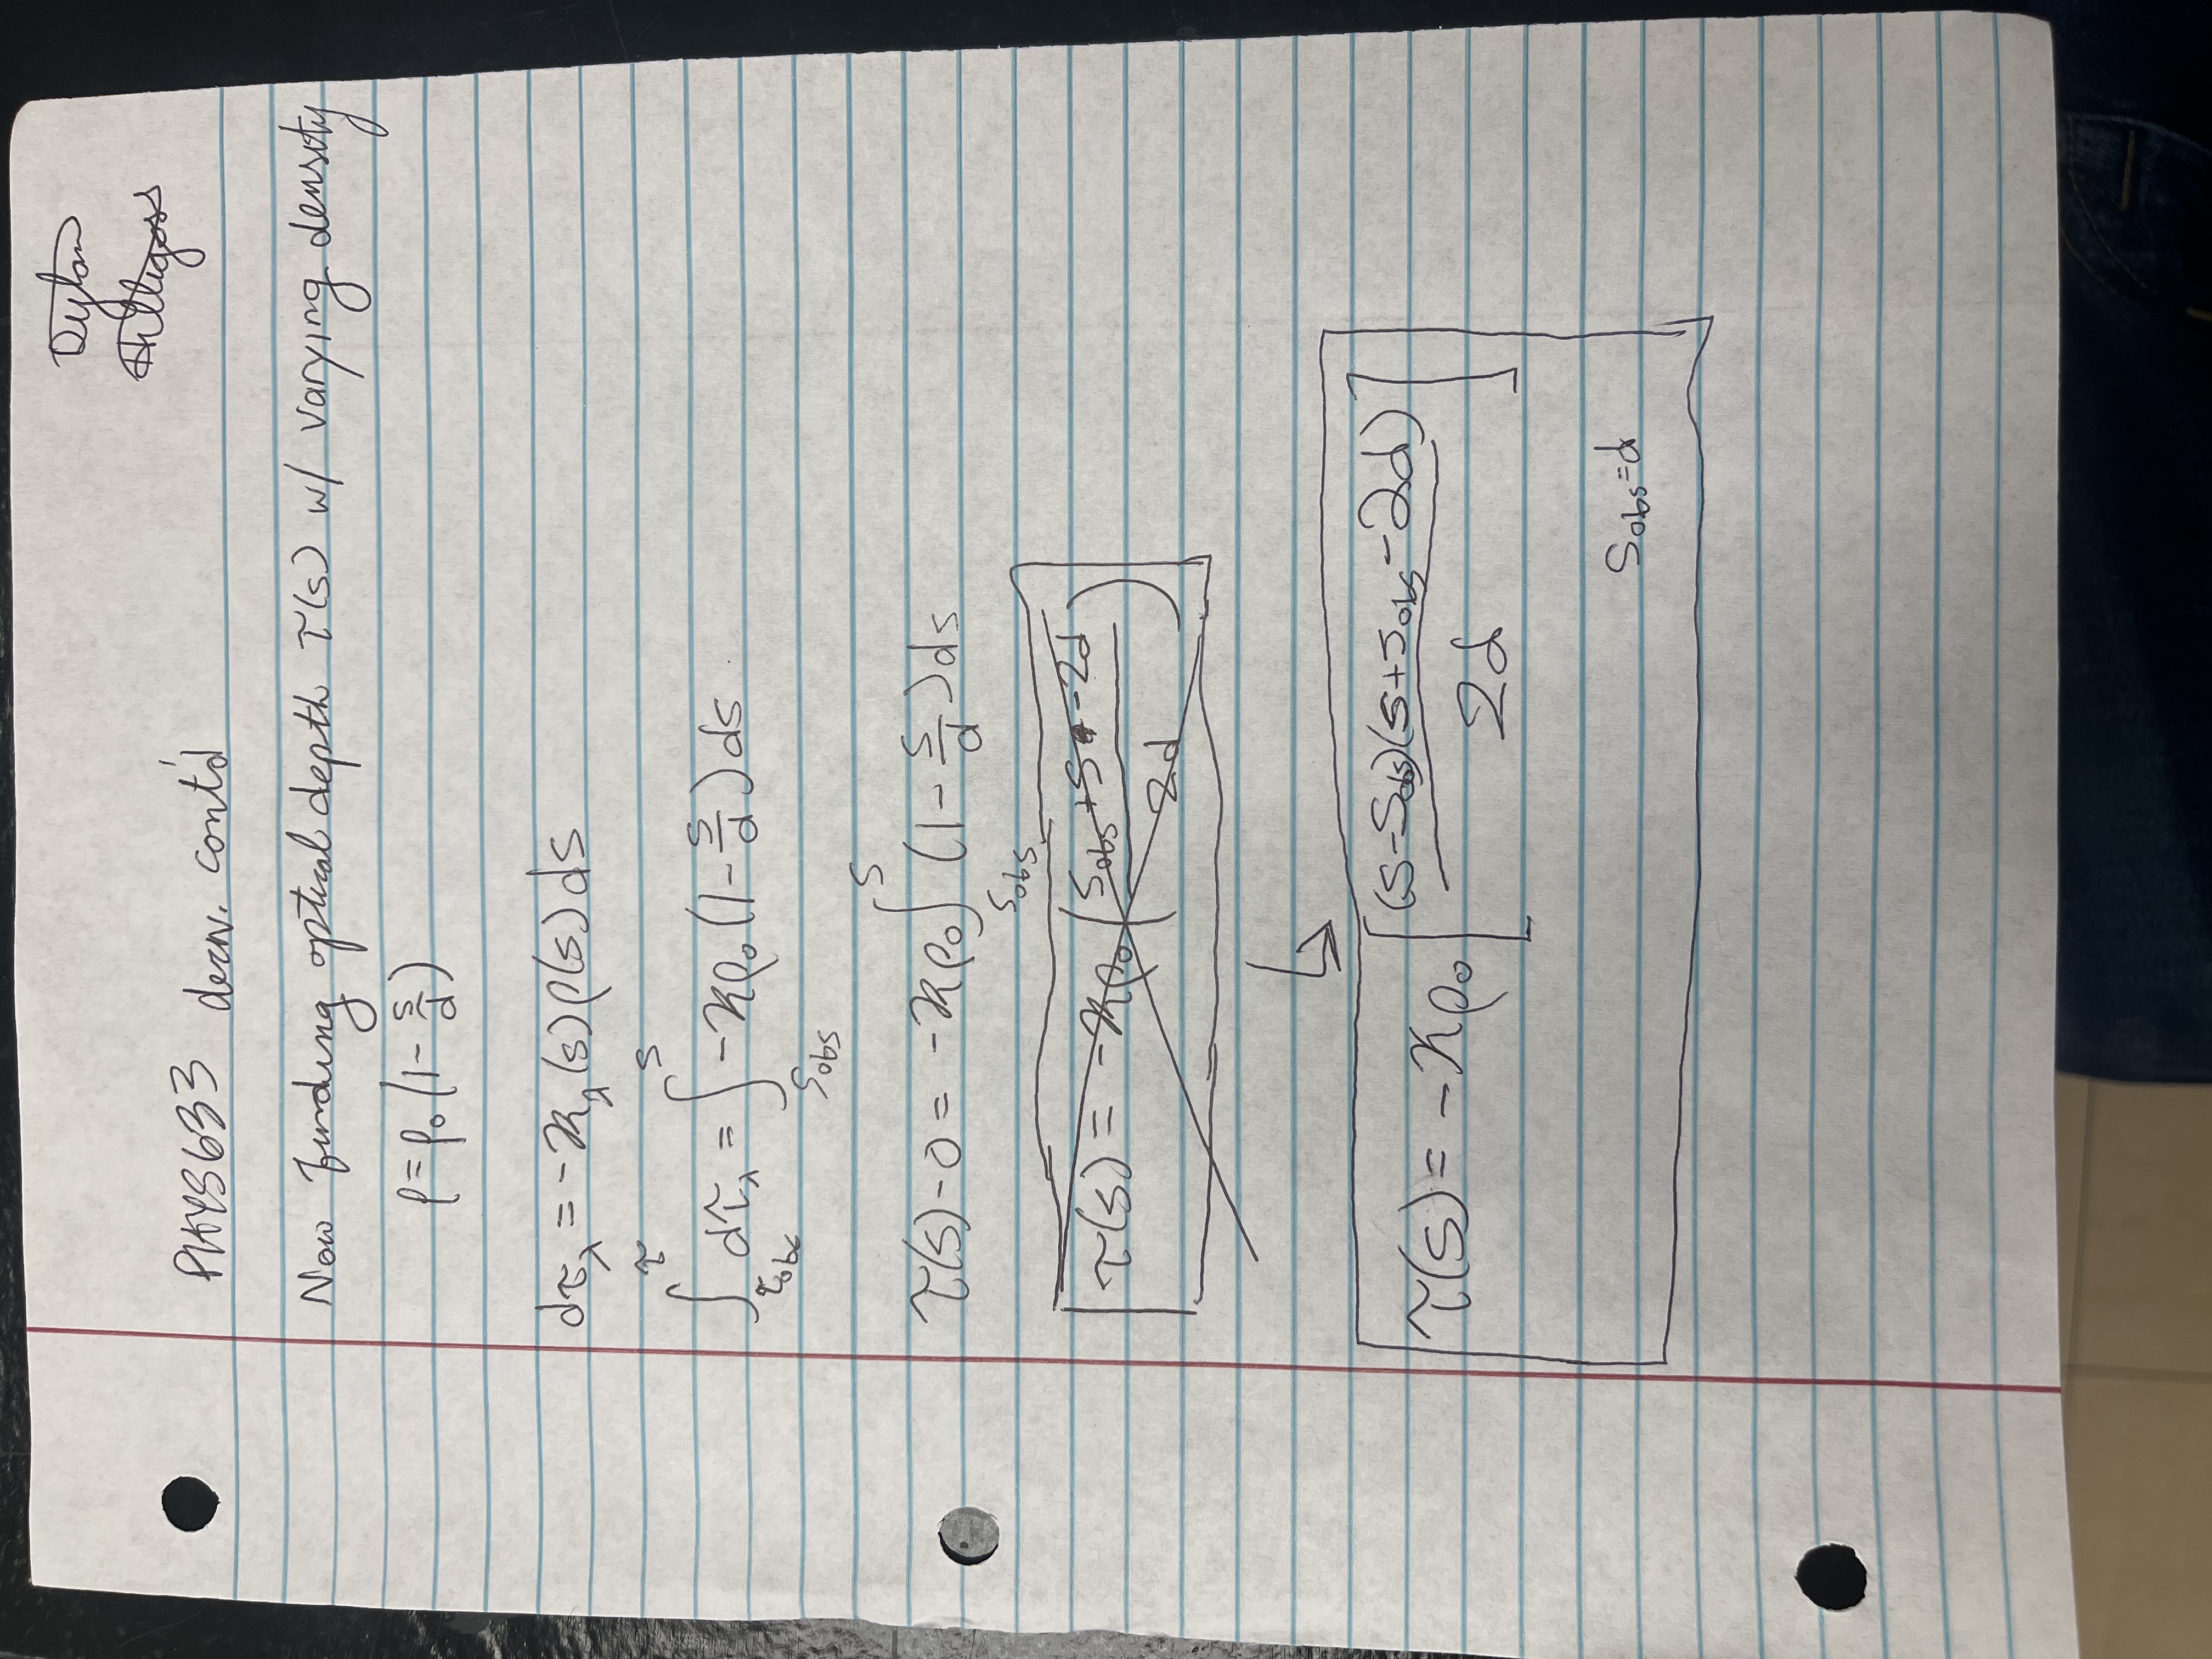 Dylan
Hilligoss
PHYS633 deriv. cont'd
Now finding optical depth τ(s) w/ varying density
ρ=ρ₀(1-s/d)
dτ_λ = -κ_λ(s)ρ(s)ds
∫_{τ_obs}^{τ} dτ_λ = ∫_{s_obs}^{s} -κρ₀(1-s/d)ds
τ(s)-0 = -κρ₀∫_{s_obs}^{s} (1-s/d)ds
τ(s) = -κρ₀((s_obs+s-2d)/2d)
τ(s) = -κρ₀[(s-s_obs)(s+s_obs-2d)/2d]
s_obs=d